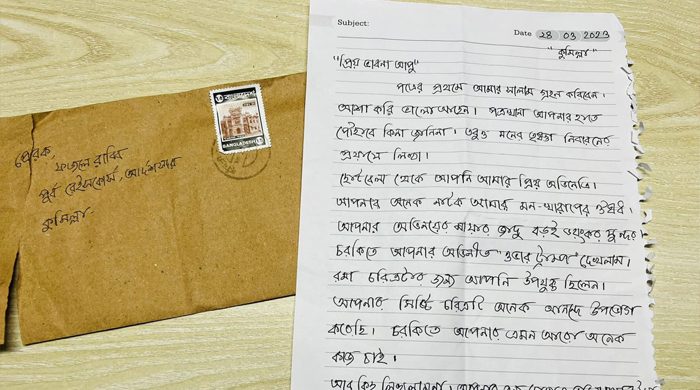 প্রেরক,
ফাহাদ রাব্বি
পূর্ব রেইসকোর্স, আদর্শ সদর
কুমিল্লা
BANGLADESH
Subject:
Date 28 03 2023
"কুমিল্লা"
"প্রিয় ভাবনা আপু"
পত্রের প্রথমে আমার সালাম গ্রহন করিবেন।
আশা করি ভালো আছেন। পত্রখানা আপনার হাতে
পৌঁছবে কিনা জানিনা। তবুও মনের তৃষ্ণতা নিবারনের
প্রয়াসে লিখা।
ছোটবেলা থেকে আপনি আমার প্রিয় অভিনেত্রি।
আপনার অনেক নাটক আমার মন-খারাপের ঔষধী।
আপনার অভিনয়ের মায়ার জাদু বড়ই ভয়ংকর সুন্দর।
চরকিতে আপনার অভিনীত "ওভার ট্রাম্প" দেখলাম।
রমা চরিত্রটার জন্য আপনি উপযুক্ত ছিলেন।
আপনার মিষ্টি চরিত্রটি অনেক আনন্দে উপভোগ
করেছি। চরকিতে আপনার এমন আরো অনেক
কাজ চাই।
আর কিছু লিখলামনা।